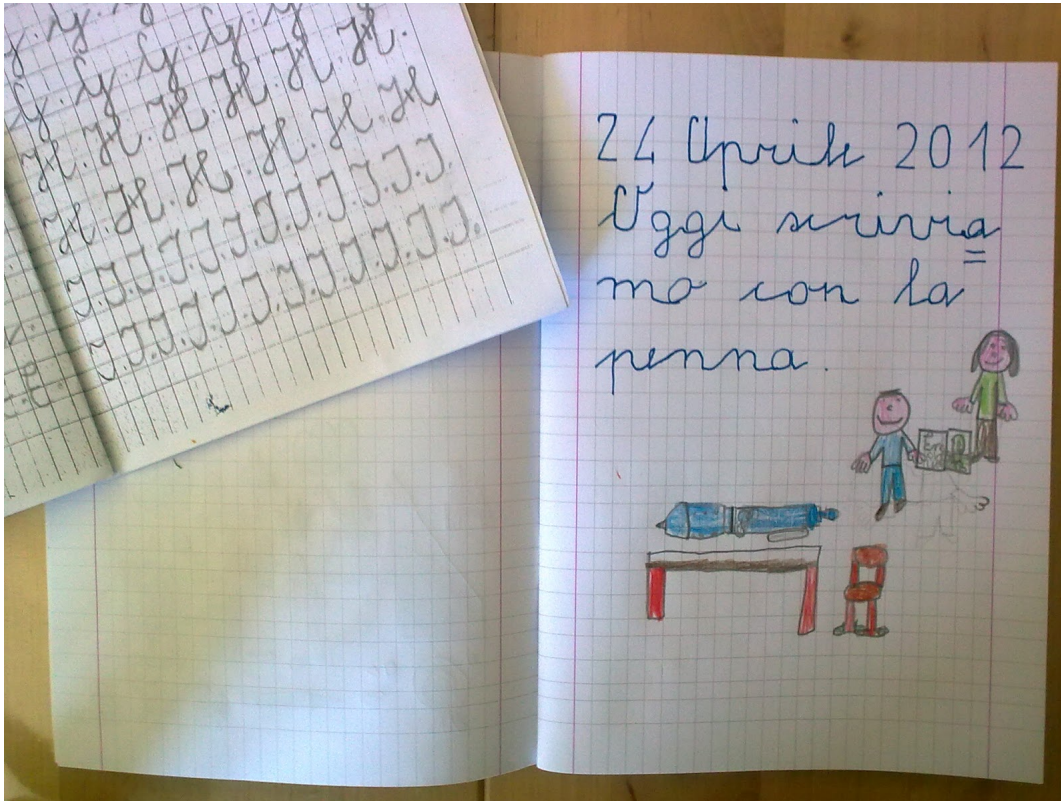 G. G. G. G. G.
G. G. G. G. G.
H. H. H. H. H. H.
H. H. H. H. H. H.
I. I. I. I. I. I. I. I. I. I.
I. I. I. I. I. I. I. I. I. I.
24 Aprile 2012
Oggi scrivia=
mo con la
penna.